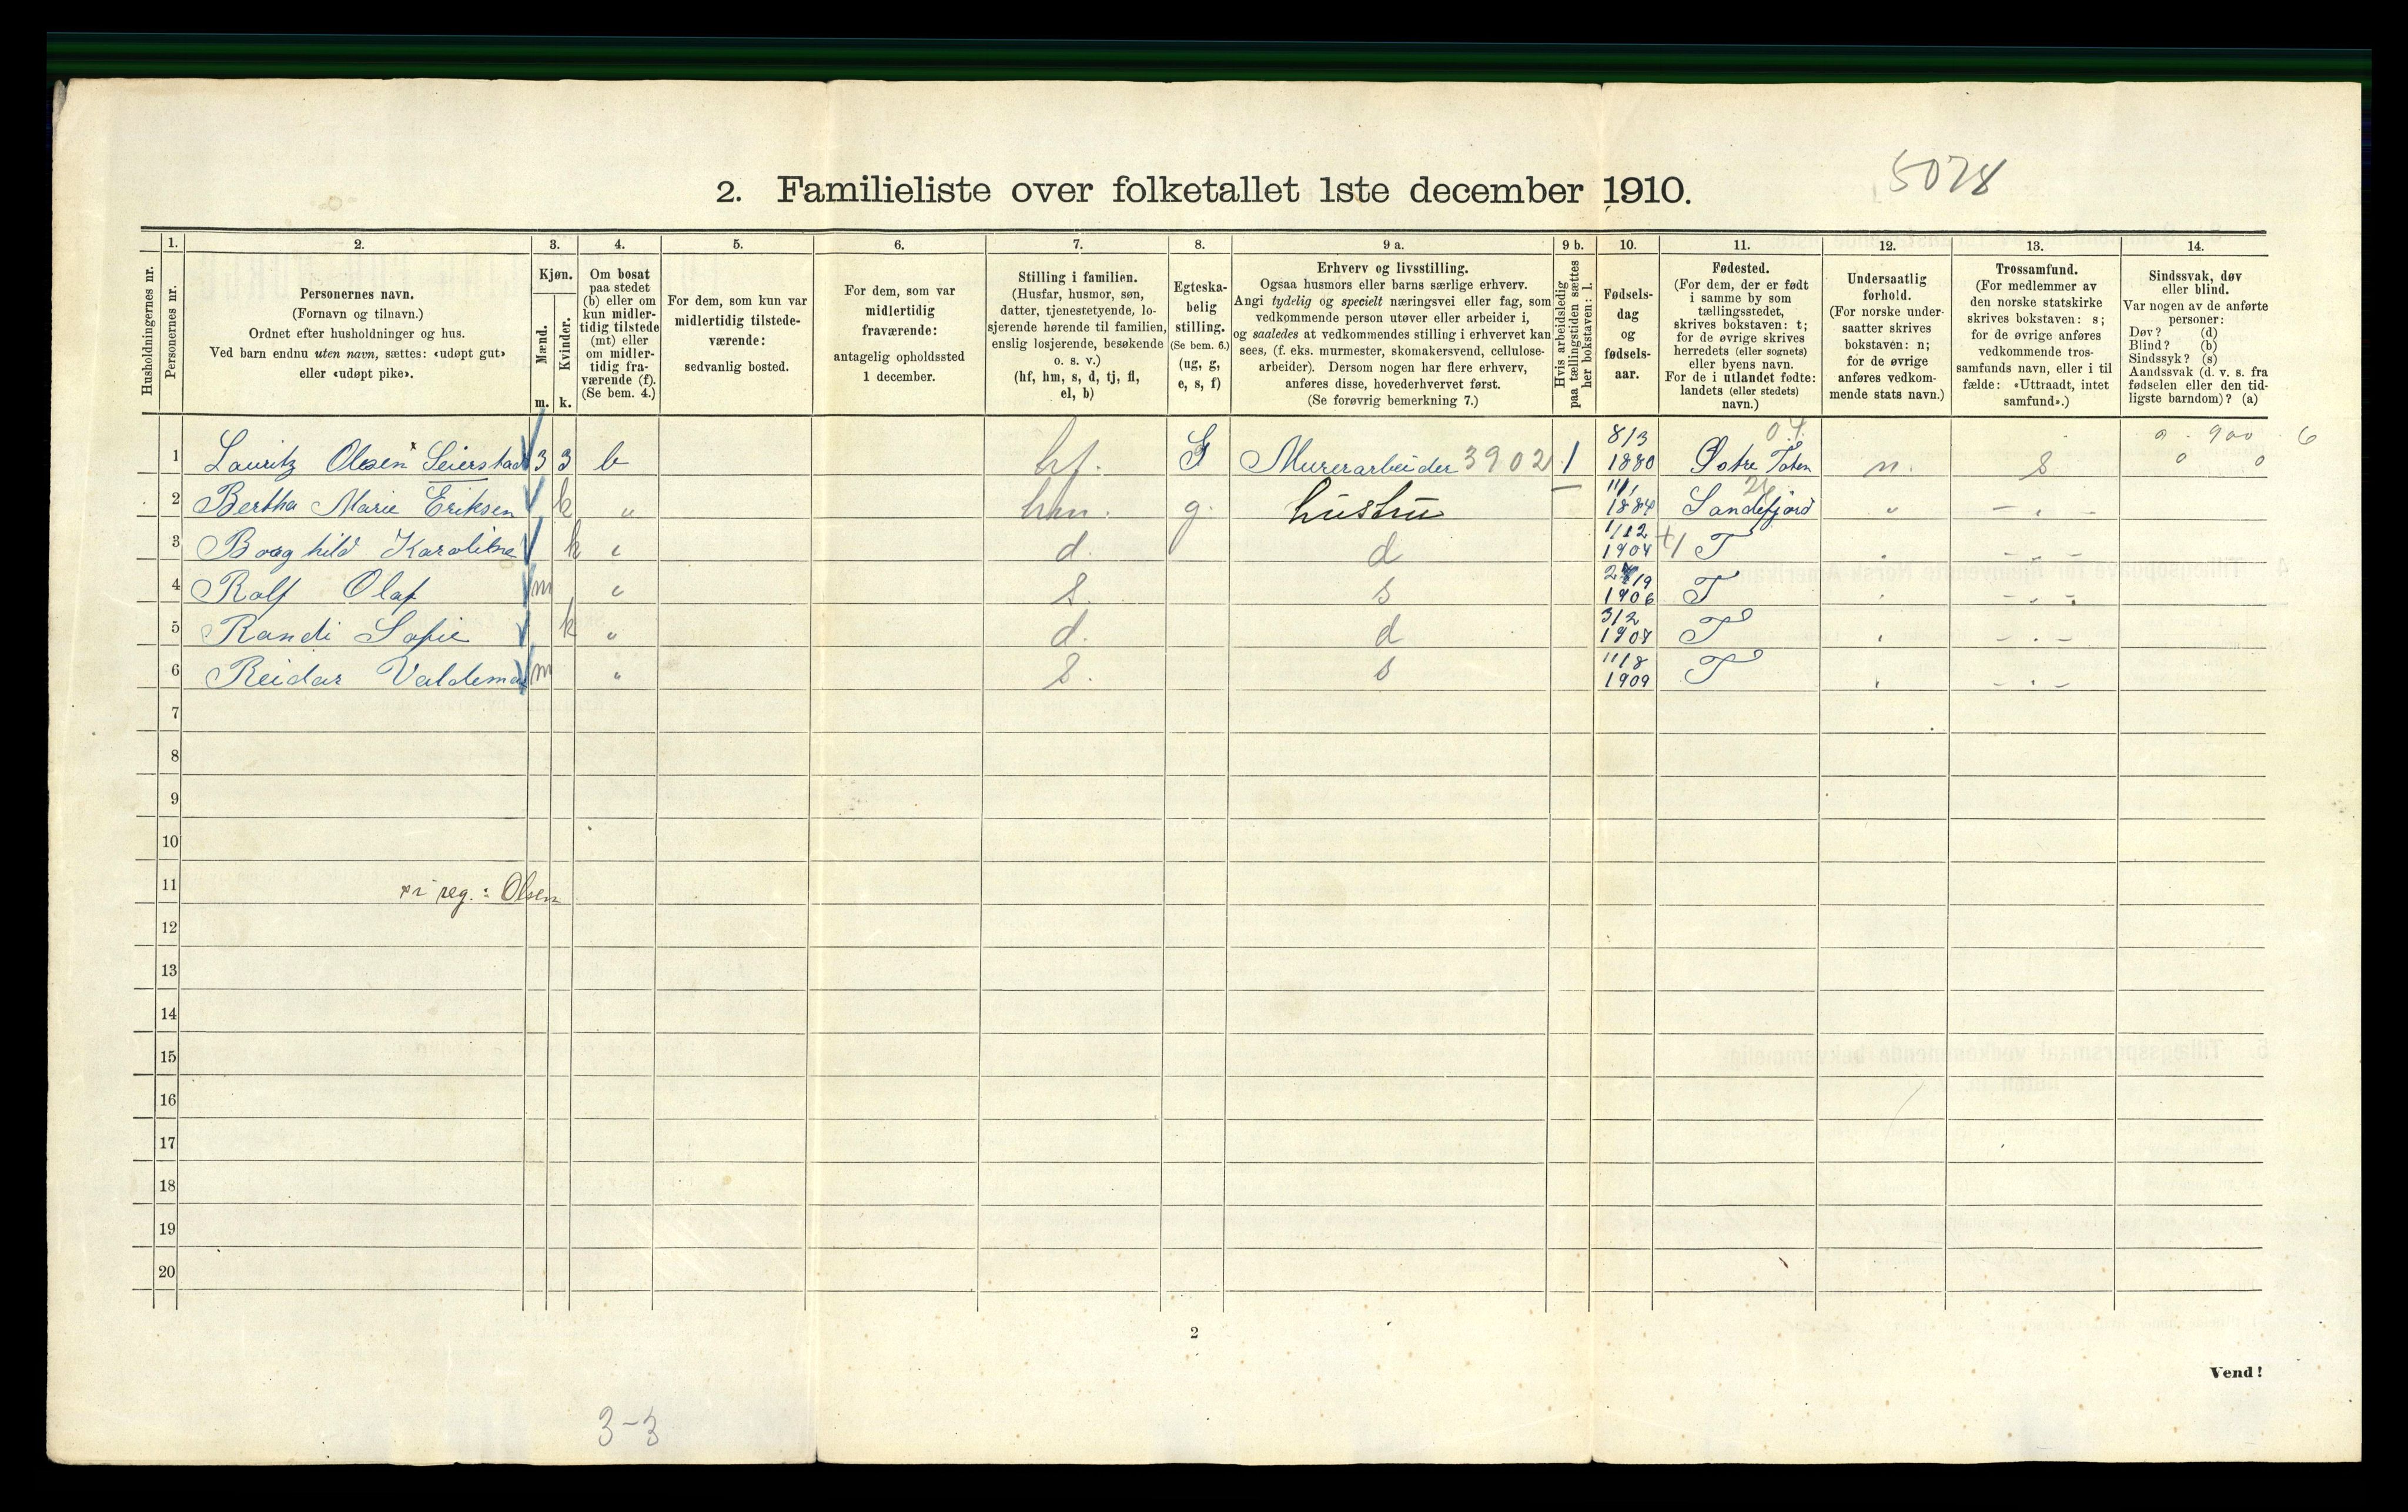 5078
2. Familieliste over folketallet 1ste december 1910.
Husholdningernes nr.
1.
Personernes nr.
2.
Personernes navn.
(Fornavn og tilnavn.)
Ordnet efter husholdninger og hus.
Ved barn endnu uten navn, sættes: «udøpt gut»
eller «udøpt pike».
3.
Kjøn.
Mænd.
m.
Kvinder.
k.
4.
Om bosat
paa stedet
(b) eller om
kun midler-
tidig tilstede
(mt) eller
om midler-
tidig fra-
værende (f).
(Se bem. 4.)
5.
For dem, som kun var
midlertidig tilstede-
værende:
sedvanlig bosted.
6.
For dem, som var
midlertidig
fraværende:
antagelig opholdssted
1 december.
7.
Stilling i familien.
(Husfar, husmor, søn,
datter, tjenestetyende, lo-
sjerende hørende til familien,
enslig losjerende, besøkende
o. s. v.)
(hf, hm, s, d, tj, fl,
el, b)
8.
Egteska-
belig
stilling.
(Se bem. 6.)
(ug, g,
e, s, f)
9 a.
Erhverv og livsstilling.
Ogsaa husmors eller barns særlige erhverv.
Angi tydelig og specielt næringsvei eller fag, som
vedkommende person utøver eller arbeider i,
og saaledes at vedkommendes stilling i erhvervet kan
sees, (f. eks. murmester, skomakersvend, cellulose-
arbeider). Dersom nogen har flere erhverv,
anføres disse, hovederhvervet først.
(Se forøvrig bemerkning 7.)
9 b.
Hvis arbeidsledig
paa tællingstiden sættes
her bokstaven: l.
10.
Fødsels-
dag
og
fødsels-
aar.
11.
Fødested.
(For dem, der er født
i samme by som
tællingsstedet,
skrives bokstaven: t;
for de øvrige skrives
herredets (eller sognets)
eller byens navn.
For de i utlandet fødte:
landets (eller stedets)
navn.)
12.
Undersaatlig
forhold.
(For norske under-
saatter skrives
bokstaven: n;
for de øvrige
anføres vedkom-
mende stats navn.)
13.
Trossamfund.
(For medlemmer av
den norske statskirke
skrives bokstaven: s;
for de øvrige anføres
vedkommende tros-
samfunds navn, eller i til
fælde: «Uttraadt, intet
samfund».)
14.
Sindssvak, døv
eller blind.
Var nogen av de anførte
personer:
Døv? (d)
Blind? (b)
Sindssyk? (s)
Aandssvak (d. v. s. fra
fødselen eller den tid-
ligste barndom)? (a)
04 0 . 900 . 6
1 Lauritz Olsen × Seierstad 3 3 b hf. G Murerarbeider 3902 1 8/3 1880 Østre Toten n. s 0 0
2 Bertha Marie Eriksen k " hm. g. hustru 11/1 1884 Sandefjord " - " -
3 Borghild Karoline k " d. d 1/12 1904 T " - " -
4 Rolf Olaf m " s. s 1906 T " - " -
5 Randi Sofie k " d. d 3/2 1908 T " - " -
6 Reidar Valdemar m " s. s 11/8 1909 T " - " -
7
8
9
10
11 × i reg.: Olsen
12
13
14
15
16
17
18
19
20
2
Vend!
3-3